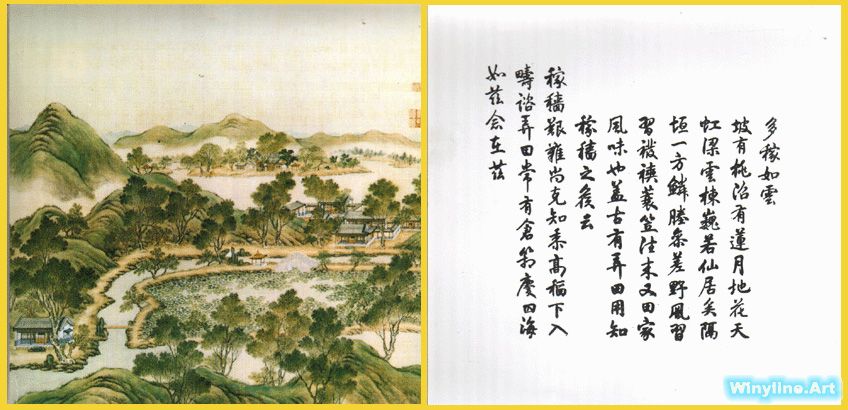 多稼如雲
坡有桃沼有蓮月地花天
虹梁雲棟巍若仙居矣隔
垣一方鱗塍參差野風習
習襏襫蓑笠往來又田家
風味也蓋古有弄田用知
稼穡之候云
稼穡艱難尚克知黍高稻下入
疇諮弄田常有倉箱慶四海
如茲念在茲
Winyline.Art